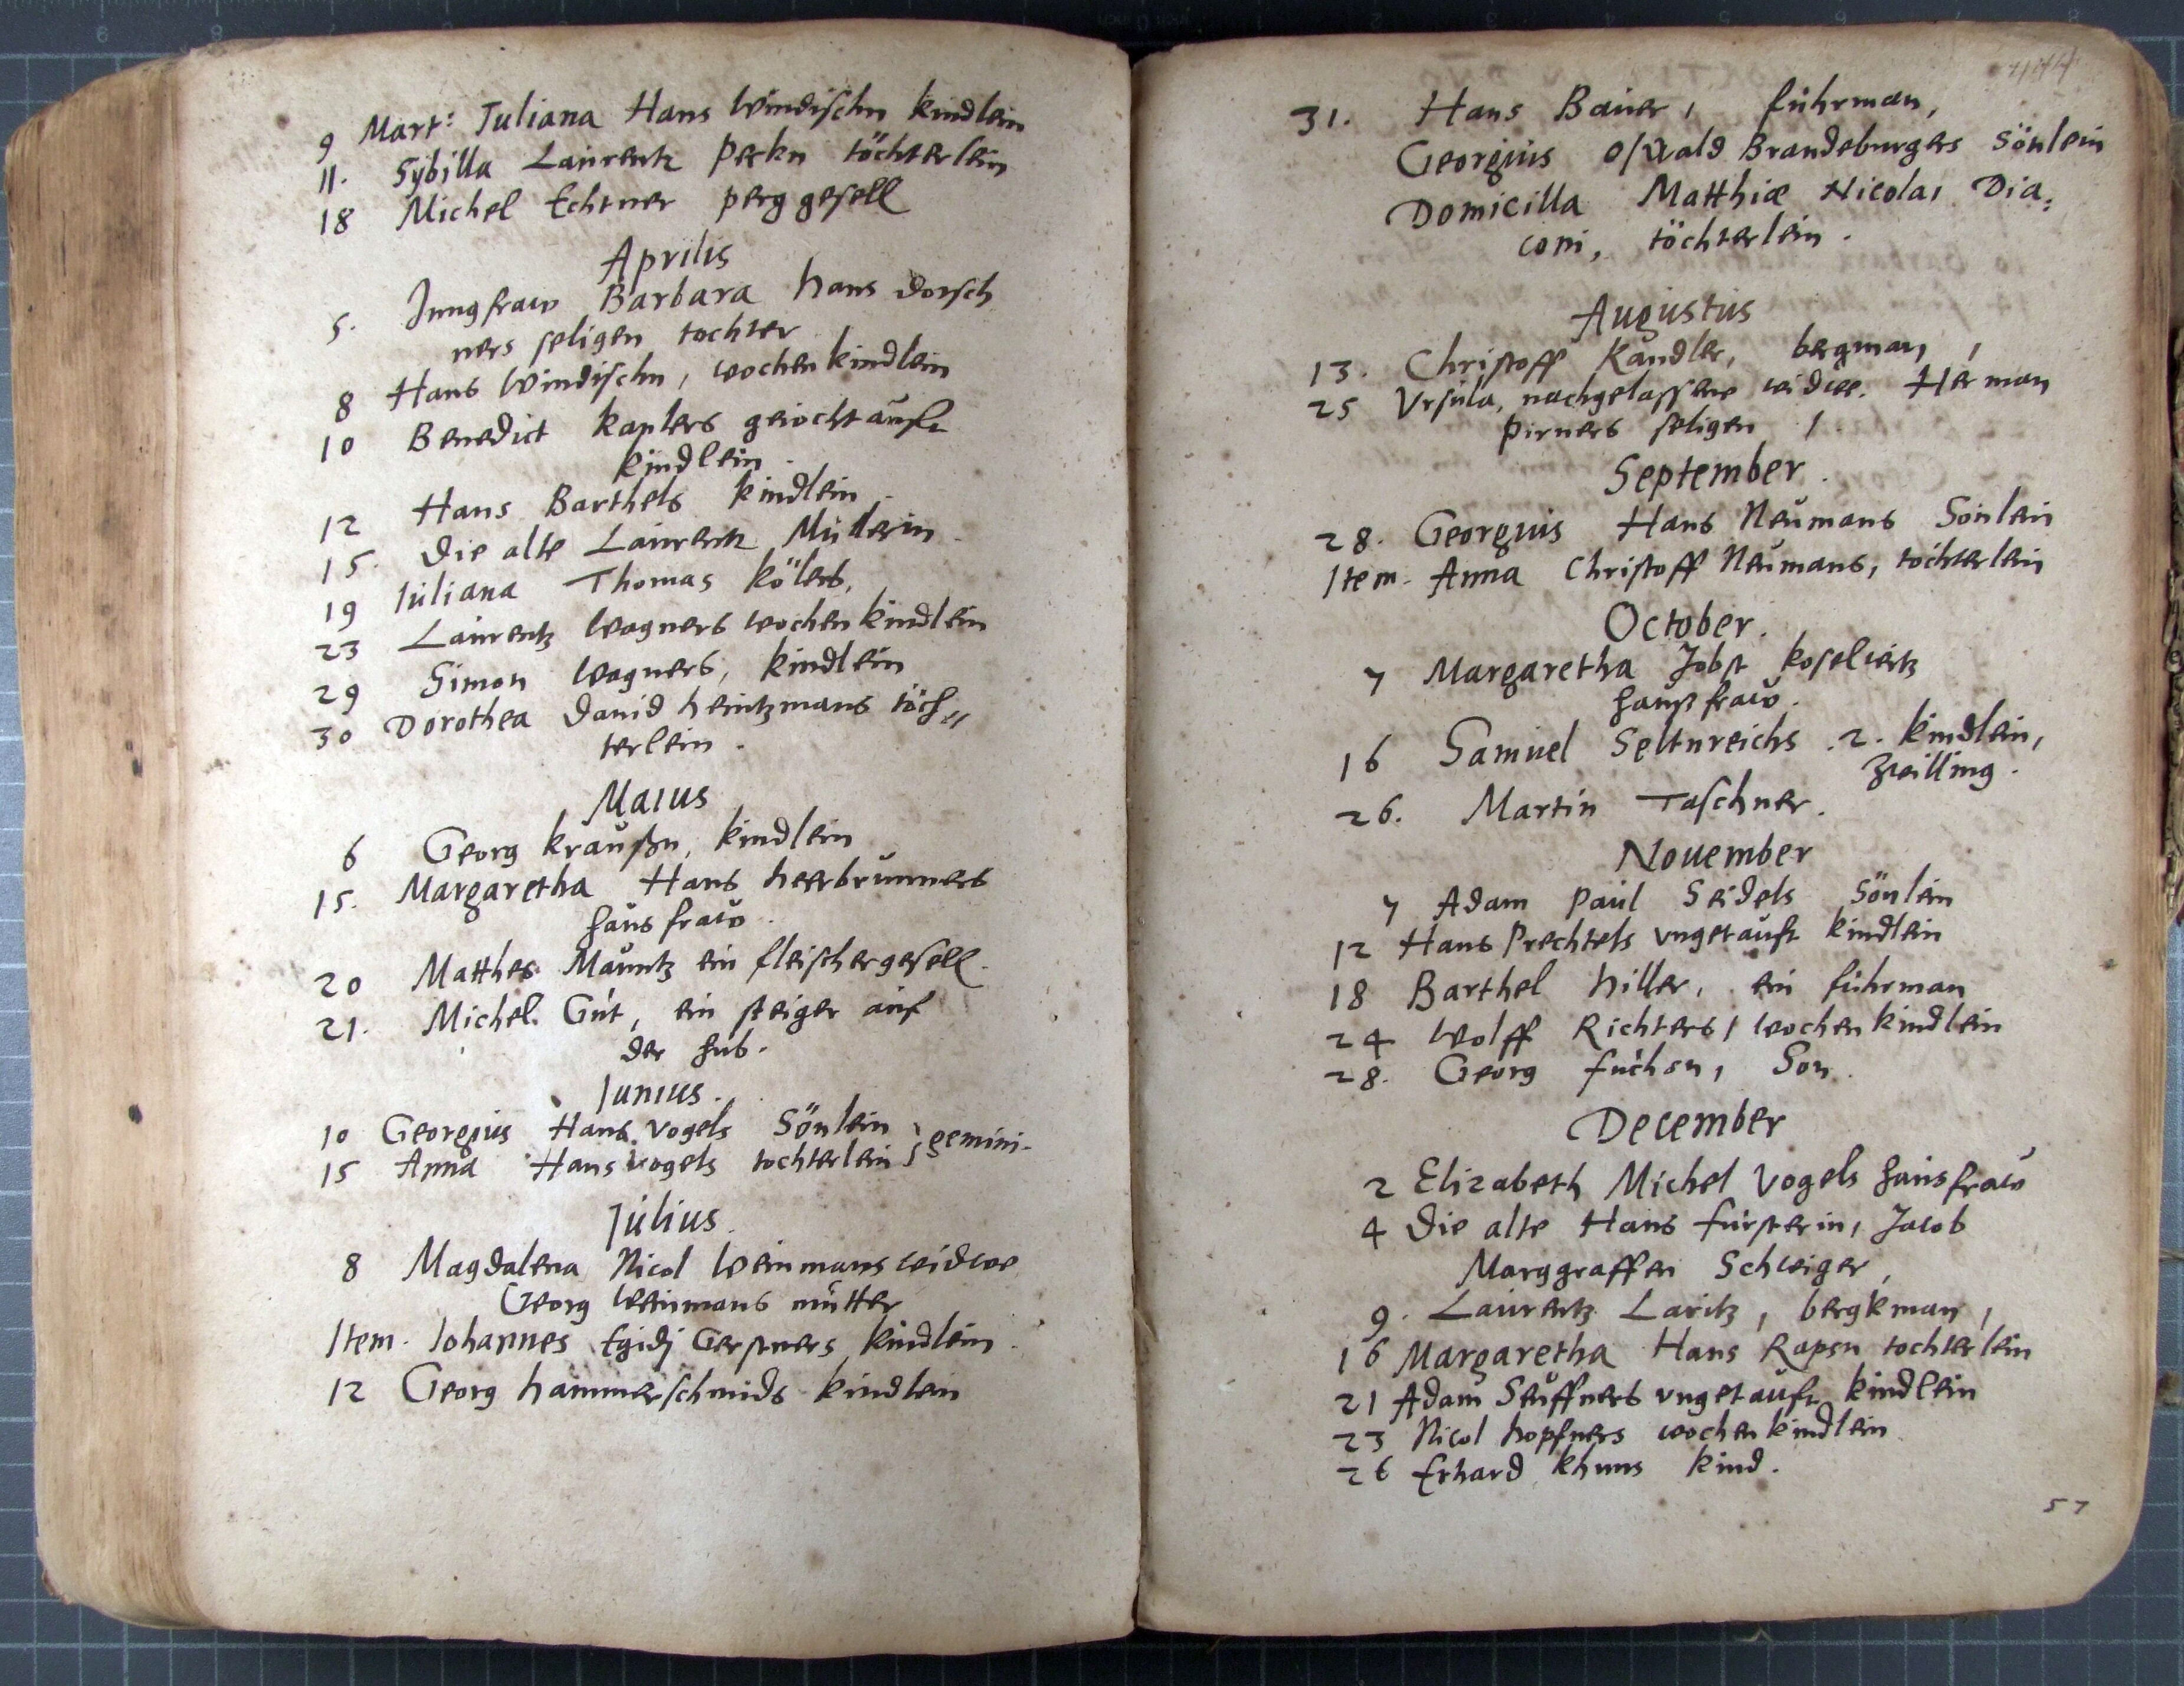 9 Mart: Juliana Hans Windischn kindlein
11. Sybilla Laurentz Peckn töchterlein
18 Michel Echtner perggesell
Aprilis
5. Jungfraw Barbara Hans Dorsch
ners seligen tochter
8 Hans Windischn, wochenkindlein
10 Benedict kaplers geiochtaufft
kindlein.
12 Hans Barthels kindlein.
15. Die alte Laurentz Müllerin.
19 Juliana Thomas Kölers.
23 Laurentz Wagners wochenkindlein
29 Simon Wagners, kindlein
30 Dorothea Dauid Heintzmans töch„
terlein.
Maius
6 Georg Kraußn, kindlein
15. Margaretha Hans Heerbrunners
hausfraw.
20 Matthes Mauntz ein fleischergesell.
21. Michel Gut, ein steiger auf
der hub.
Iunius.
10 Georgius Hans Vogels Sönlein } gemini.
15 Anna Hans Vogels tochterlein
Julius.
8 Magdalena Nicol Weinmans widwe
Georg Weinmans mutter
Item. Iohannes Egidj Gerstners kindlein.
12 Georg Hammerschmids kindlein
31. Hans Bauer, fuhrman,
Georgius Oswald Brandeburgers Sönlein
Domicilla Matthiæ Nicolai Dia:
coni, töchterlein.
Augustus
13. Christoff Kandler, bergman,
25 Vrsula, nachgelassene widwe. Herman
Pirners seligen /.
September.
28. Georgius Hans Neumans Sönlein
Item. Anna Christoff Neumans, töchterlein
October.
7 Margaretha Jobst Koseliertz
haußfraw.
16 Samuel Seltnreichs .2. kindlein,
zwilling.
26. Martin Taschner.
Nouember
7 Adam Paul Seidels Sönlein
12 Hans Prechtels vngetaufft kindlein
18 Barthel Hiller, ein fuhrman
24 Wolff Richters, wochenkindlein
28. Georg Fuchsn, Son.
December
2 Elizabeth Michel Vogels hausfraw
4 Die alte Hans Fürsterin, Jacob
Marggraffen Schwiger,
9. Laurentz Laritz, bergkman,
16 Margaretha Hans Rapsn tochterlein
21 Adam Seuffners vngetaufft kindlein
23 Nicol Hopfners wochenkindlein
26 Erhard Khuns kind.
57